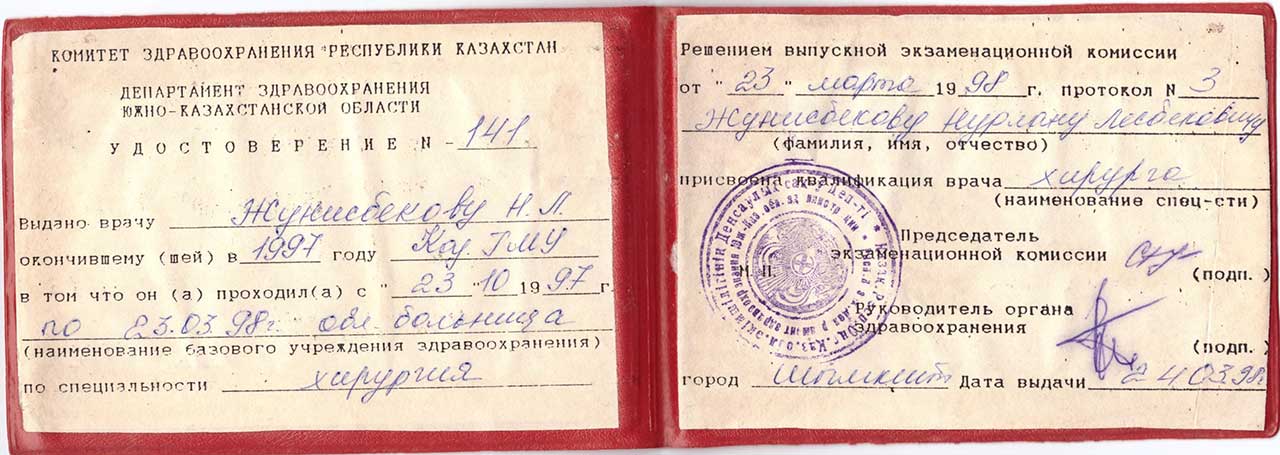 КОМИТЕТ ЗДРАВООХРАНЕНИЯ РЕСПУБЛИКИ КАЗАХСТАН
ДЕПАРТАМЕНТ ЗДРАВООХРАНЕНИЯ
ЮЖНО-КАЗАХСТАНСКОЙ ОБЛАСТИ
УДОСТОВЕРЕНИЕ N - 141
Выдано врачу Жунисбекову Н.Л.
окончившему (шей) в 1997 году Каз. ГМУ
в том что он (а) проходил(а) с " 23 " 10 1997 г.
по 23.03.98г. обл. больница
(наименование базового учреждения здравоохранения)
по специальности хирургия
Решением выпускной экзаменационной комиссии
от " 23 " марта 1998 г. протокол N 3
Жунисбекову Нурлану Лесбековичу
(фамилия, имя, отчество)
присвоена квалификация врача хирурга
(наименование спец-сти)
Председатель
экзаменационной комиссии
(подп.)
М.П.
Руководитель органа
здравоохранения
(подп.)
город Шымкент Дата выдачи 24.03.98г